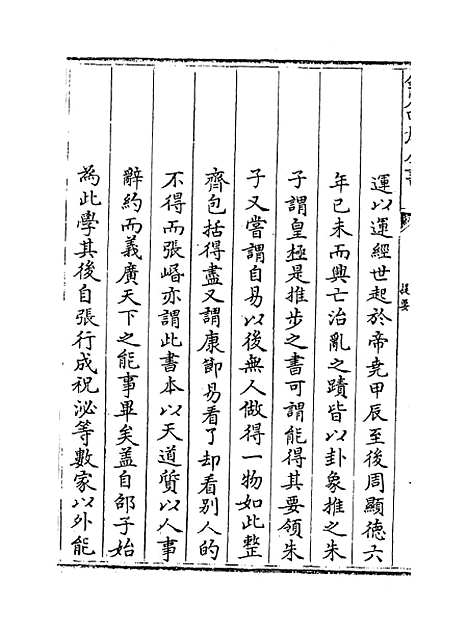 運以運經世起於帝堯甲辰至後周顯德六
年己未而興亡治亂之蹟皆以卦象推之朱
子謂皇極是推步之書可謂能得其要領朱
子又嘗謂自易以後無人做得一物如此整
齊包括得盡又謂康節易看了却看别人的
不得而張㟭亦謂此書本以天道質以人事
辭約而義廣天下之能事畢矣蓋自邵子始
為此學其後自張行成祝泌等數家以外能
提要